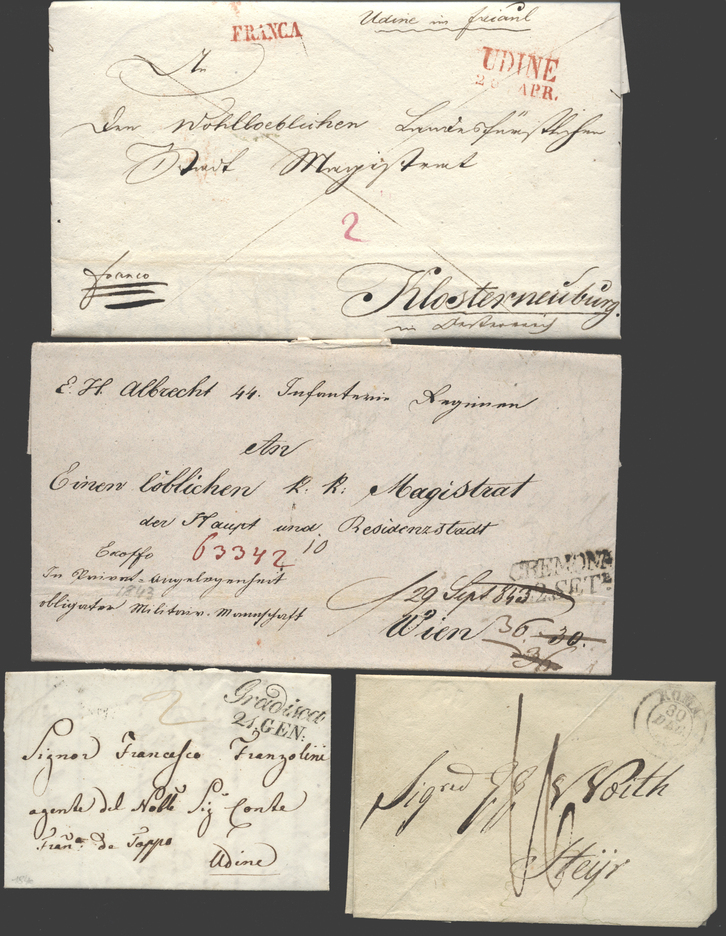 FRANCA
Udine in Friaul
UDINE
APR.
An
Den Wohlloeblichen Landesfürstlichen
Stadt Magistrat
2
franco
Klosterneuburg.
in Oesterreich
E. H. Albrecht 44. Infanterie Regimen
An
Einen löblichen k. k: Magistrat
der Haupt und Residenzstadt
Exoffo 63342 10
In Privat-Angelegenheit
1843
obligater Militair-Mannschaft
CREMONA
SETE
29 Sept 843
Wien 36. 30.
36
2
Gradisca
21. GEN:
Signor Francesco Franzolini
agente del Nobe Sigr Conte
Frano. de Toppo
Udine
ROMA
30
DEC
Sigred
Voith
Steijr